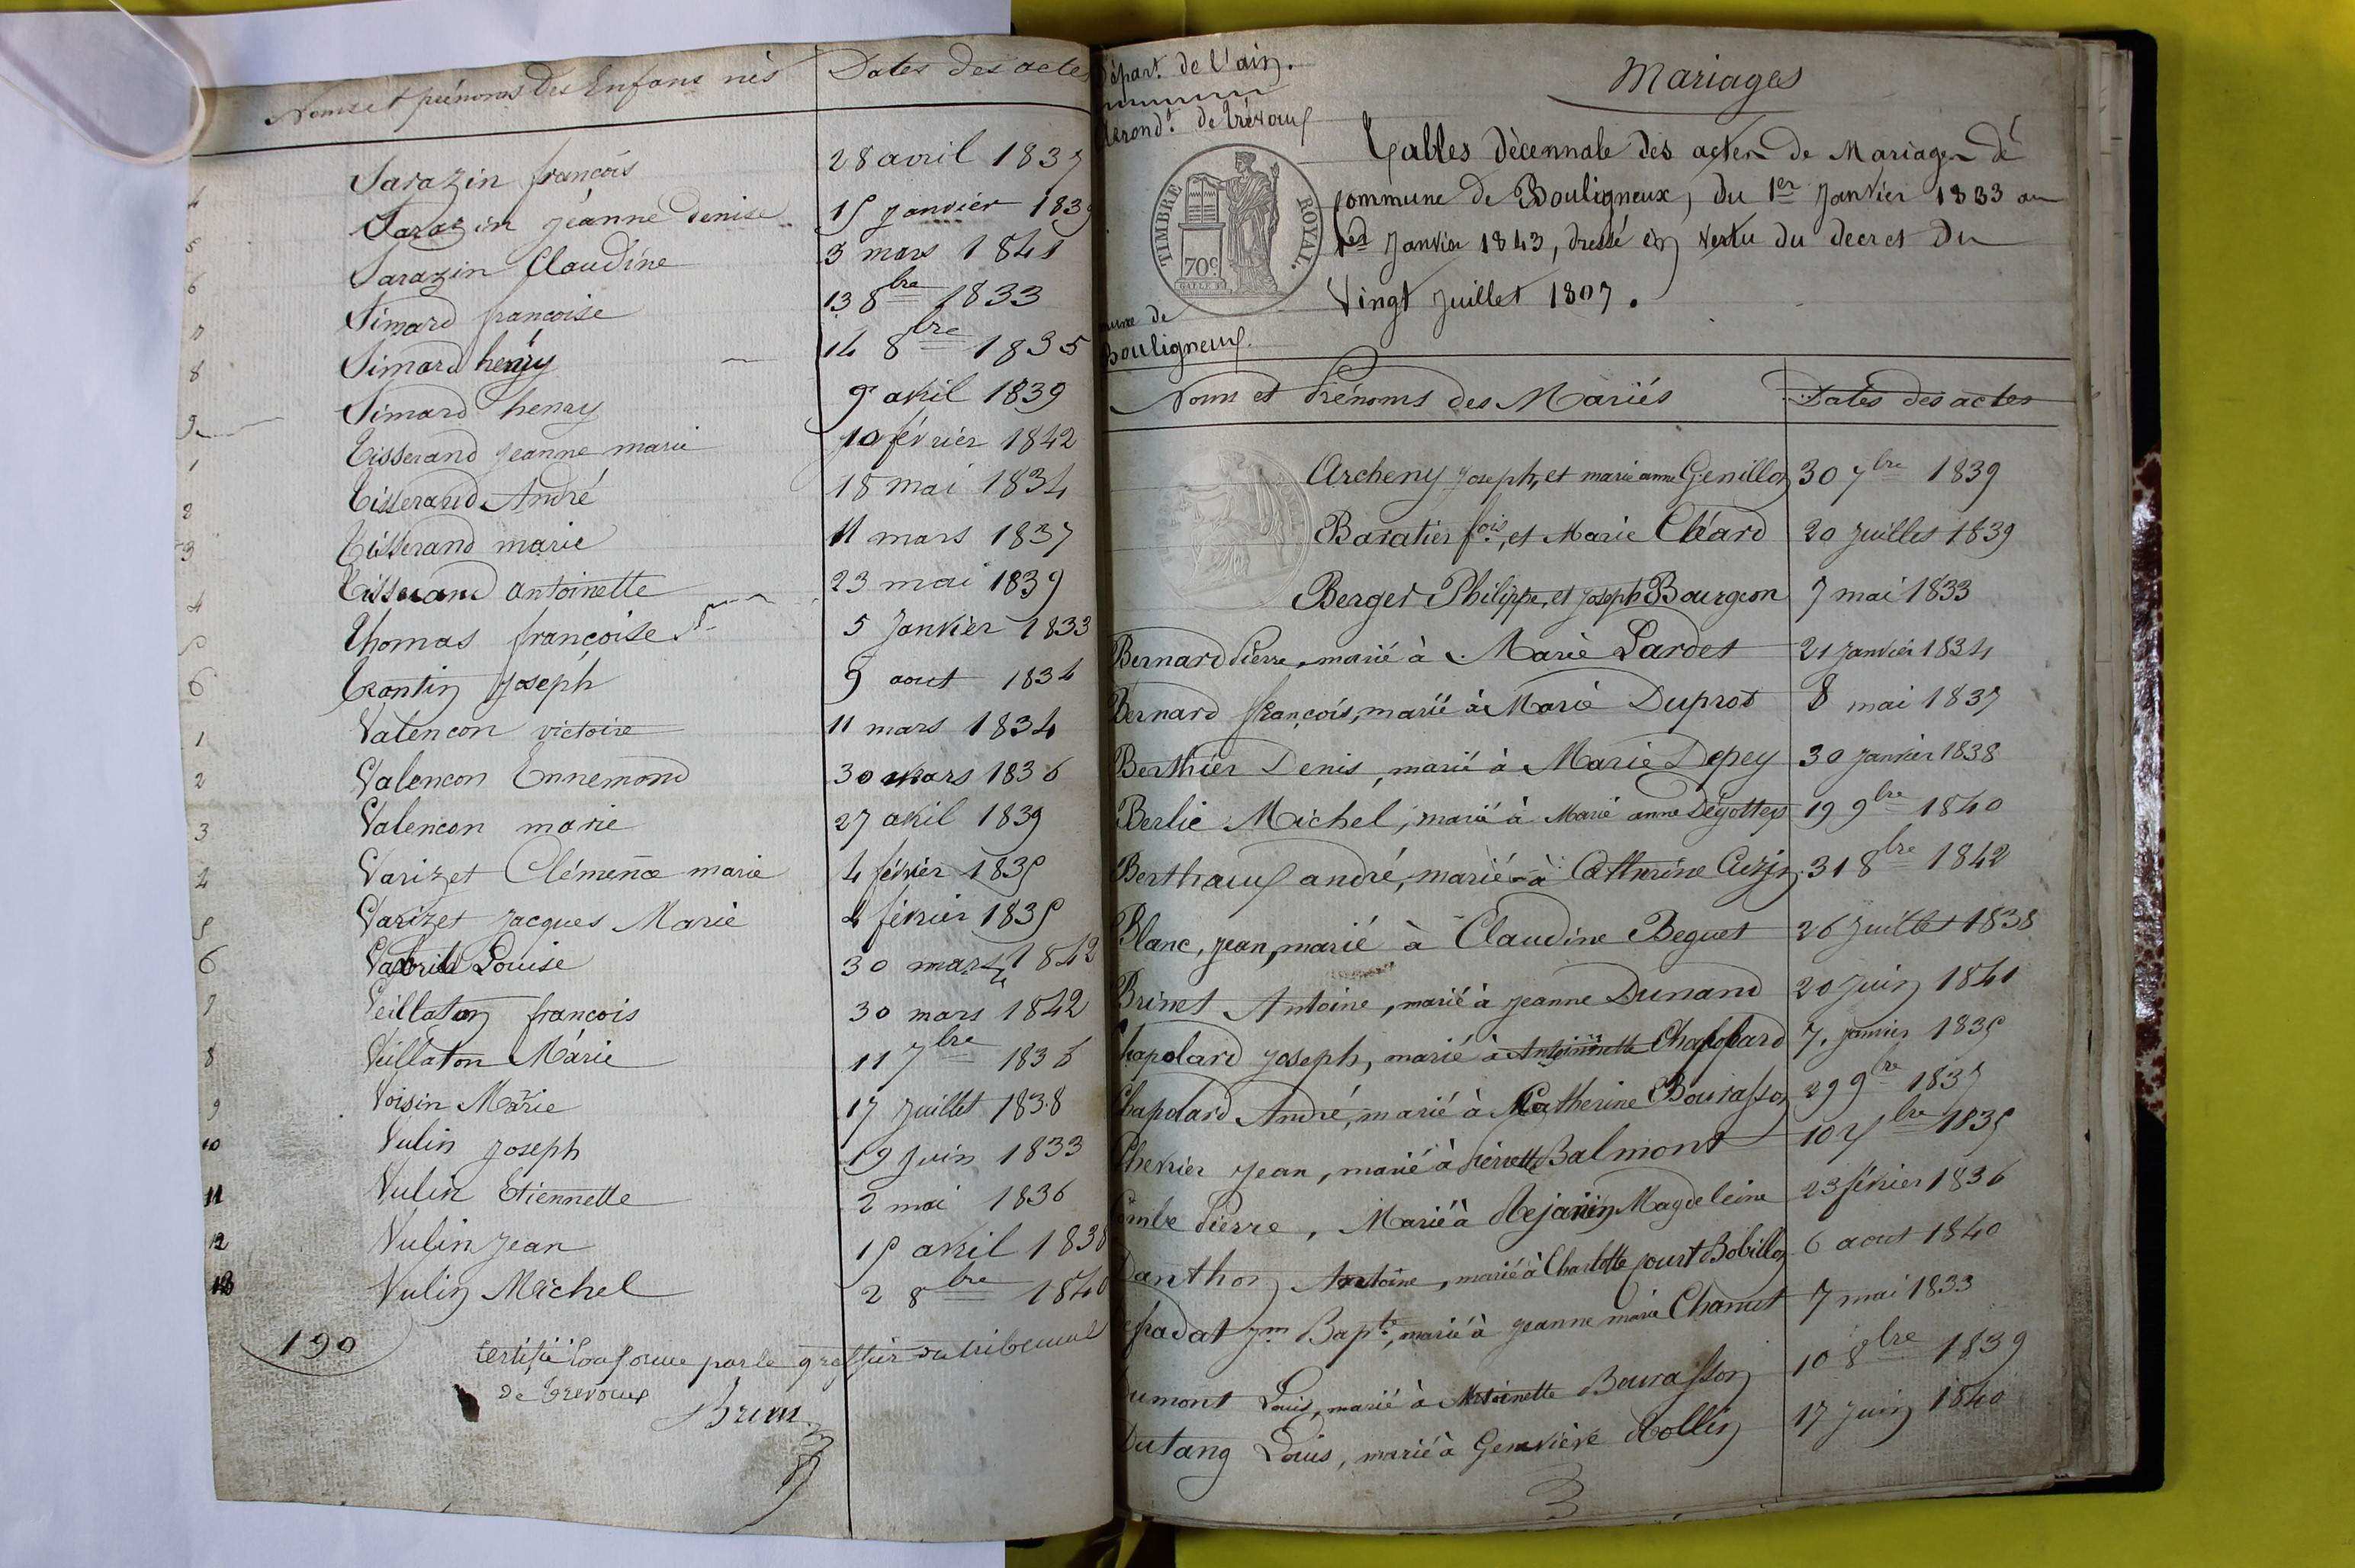 Noms et prénoms des Enfans nés
Dates des actes
Sarazin françois 28 avril 1837
5 Sarazin jeanne denise 15 janvier 1839
6 Sarazin Claudine 3 mars 1841
7 Simard françoise 13 8bre 1833
8 Simard henry 14 8bre 1835
9 Simard henry 9 avril 1839
1 Tisserand jeanne marie 10 février 1842
2 Tisserand André 18 mai 1834
3 Tisserand marie 11 mars 1837
4 Tisserand antoinette 23 mai 1839
5 Thomas françoise 5 janvier 1833
6 Trontin joseph 9 aout 1834
1 Valencon victoire 11 mars 1834
2 Valencon Ennemond 30 mars 1836
3 Valencon marie 27 avril 1839
4 Varizet Clémence marie 4 février 1835
5 Varizet jacques Marie 4 février 1835
6 Louise 30 mars 1842
7 Veillaton françois 30 mars 1842
8 Veillaton Marie 11 7bre 1836
9 Voisin Marie 17 juillet 1838
10 Vulin joseph 19 juin 1833
11 Vulin Etiennette 2 mai 1836
12 Vulin jean 15 avril 1838
13 Vulin Michel 2 8bre 1840
190
Certifié conforme par le greffier du tribunal
de Trevoux
Départ. de l'ain.
arond.t de Trévoux
TIMBRE ROYAL.
70c
mune de
Bouligneux.
Mariages
Tables décennale des actes de Mariages dé
commune de Bouligneux, du 1er janvier 1833 au
1er janvier 1843, dressé en vertu du decret du
Vingt juillet 1807.
Noms et Prénoms des Mariés
Dates des actes
Archeny joseph, et marie anne Genillon 30 7bre 1839
Baratier fois, et Marie Cléard 20 juillet 1839
Berger Philippe, et joseph Bourgeon 7 mai 1833
Bernard Pierre, marié à Marie Lardet 21 janvier 1834
Bernard françois, marié à Marie Duprot 8 mai 1837
Berthier Denis, marié à Marie Depey 30 janvier 1838
Berlie Michel, marié à Marie anne Degottex 19 9bre 1840
Berthaux andré, marié à Catherine 31 8bre 1842
Blanc, jean, marié à Claudine Beguet 26 juillet 1838
Brinet Antoine, marié à jeanne Dunand 20 juin 1841
Chapolard joseph, marié à Antoinette Chapolard 7. janvier 1835
Chapolard André, marié à Catherine Bourasson 29 9re 1837
Chevrier jean, marié à Pierrette Balmont 10 7bre 1835
Combe Pierre, Marié à Rejanin Magdeleine 23 février 1836
Danthon Antoine, marié à Charlotte Bobillon 6 aout 1840
Bapte, marié à jeanne marie Chanut 7 mai 1833
Dumont Louis, marié à Antoinette Bourasson 10 8bre 1839
Dutang Louis, marié à Geneviève Rollin 17 juin 1840
3